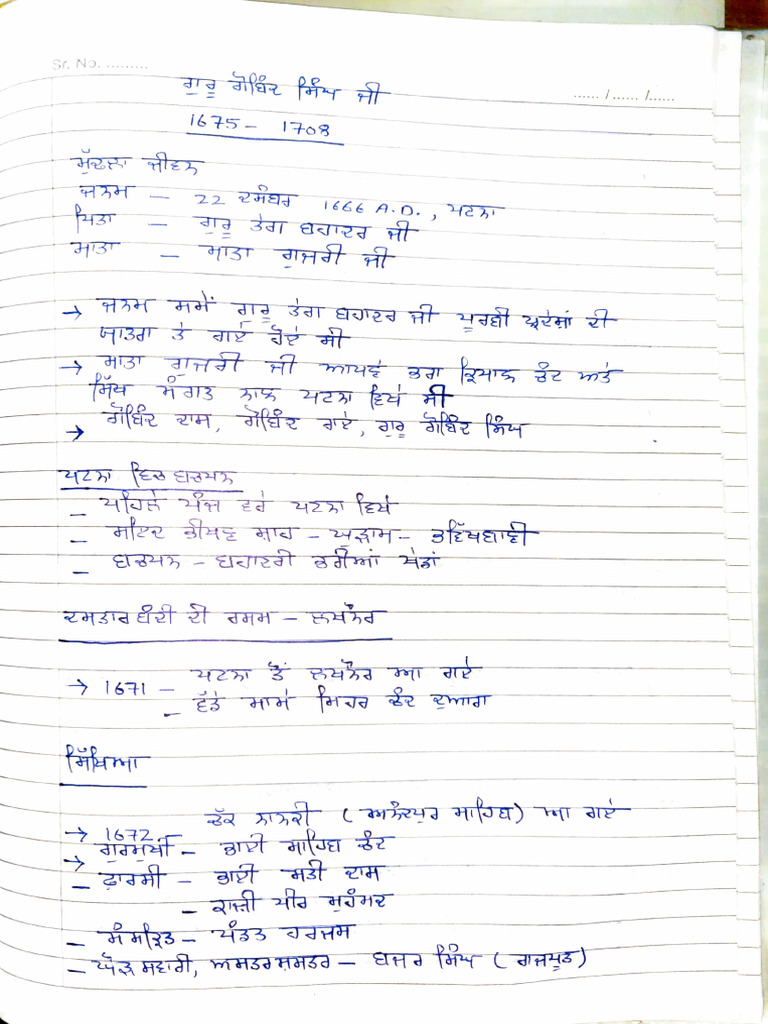 Sr. No. .........
...... / ...... /......
ਗੁਰੂ ਗੋਬਿੰਦ ਸਿੰਘ ਜੀ
1675 - 1708
ਮੁੱਢਲਾ ਜੀਵਨ
ਜਨਮ - 22 ਦਸੰਬਰ 1666 A.D., ਪਟਨਾ
ਪਿਤਾ - ਗੁਰੂ ਤੇਗ ਬਹਾਦਰ ਜੀ
ਮਾਤਾ - ਮਾਤਾ ਗੁਜਰੀ ਜੀ
→ ਜਨਮ ਸਮੇਂ ਗੁਰੂ ਤੇਗ ਬਹਾਦਰ ਜੀ ਪੂਰਬੀ ਪ੍ਰਦੇਸਾਂ ਦੀ
ਯਾਤਰਾ ਤੇ ਗਏ ਹੋਏ ਸੀ
→ ਮਾਤਾ ਗੁਜਰੀ ਜੀ ਆਪਣੇ ਭਰਾ ਕ੍ਰਿਪਾਲ ਚੰਦ ਅਤੇ
ਸਿੱਖ ਸੰਗਤ ਨਾਲ ਪਟਨਾ ਵਿਖੇ ਸੀ
→ ਗੋਬਿੰਦ ਦਾਸ, ਗੋਬਿੰਦ ਰਾਏ, ਗੁਰੂ ਗੋਬਿੰਦ ਸਿੰਘ
ਪਟਨਾ ਵਿਚ ਬਚਪਨ
- ਪਹਿਲੇ ਪੰਜ ਵਰੇ ਪਟਨਾ ਵਿਖੇ
- ਸਈਦ ਭੀਖਣ ਸ਼ਾਹ - ਘੁੜਾਮ - ਭਵਿੱਖਬਾਣੀ
- ਬਚਪਨ - ਬਹਾਦਰੀ ਭਰੀਆਂ ਖੇਡਾਂ
ਦਸਤਾਰਬੰਦੀ ਦੀ ਰਸਮ - ਲਖਨੌਰ
→ 1671 - ਪਟਨਾ ਤੋਂ ਲਖਨੌਰ ਆ ਗਏ
- ਵੱਡੇ ਮਾਮੇ ਮਿਹਰ ਚੰਦ ਦੁਆਰਾ
ਸਿੱਖਿਆ
→ 1672 ਚੱਕ ਨਾਨਕੀ (ਅਨੰਦਪੁਰ ਸਾਹਿਬ) ਆ ਗਏ
→ ਗੁਰਮੁਖੀ - ਭਾਈ ਸਾਹਿਬ ਚੰਦ
- ਫ਼ਾਰਸੀ - ਭਾਈ ਸਤੀ ਦਾਸ
- ਕਾਜ਼ੀ ਪੀਰ ਮੁਹੰਮਦ
- ਸੰਸਕ੍ਰਿਤ - ਪੰਡਤ ਹਰਜਸ
- ਘੋੜਸਵਾਰੀ, ਅਸਤਰਸ਼ਸਤਰ - ਬਜਰ ਸਿੰਘ (ਰਾਜਪੂਤ)